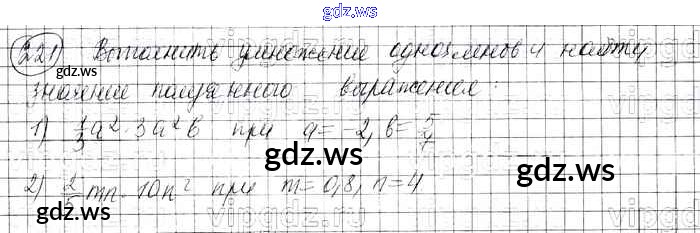 gdz.ws
221) Выполнить умножение одночленов и найти
gdz.ws
значение полученного выражения:
1) 1/3 a² · 3a²b при a = -2, b = 5/4
gdz.ws
gdz.ws
2) 2/5 mn · 10n² при m = 0,8, n = 4
gdz.ws